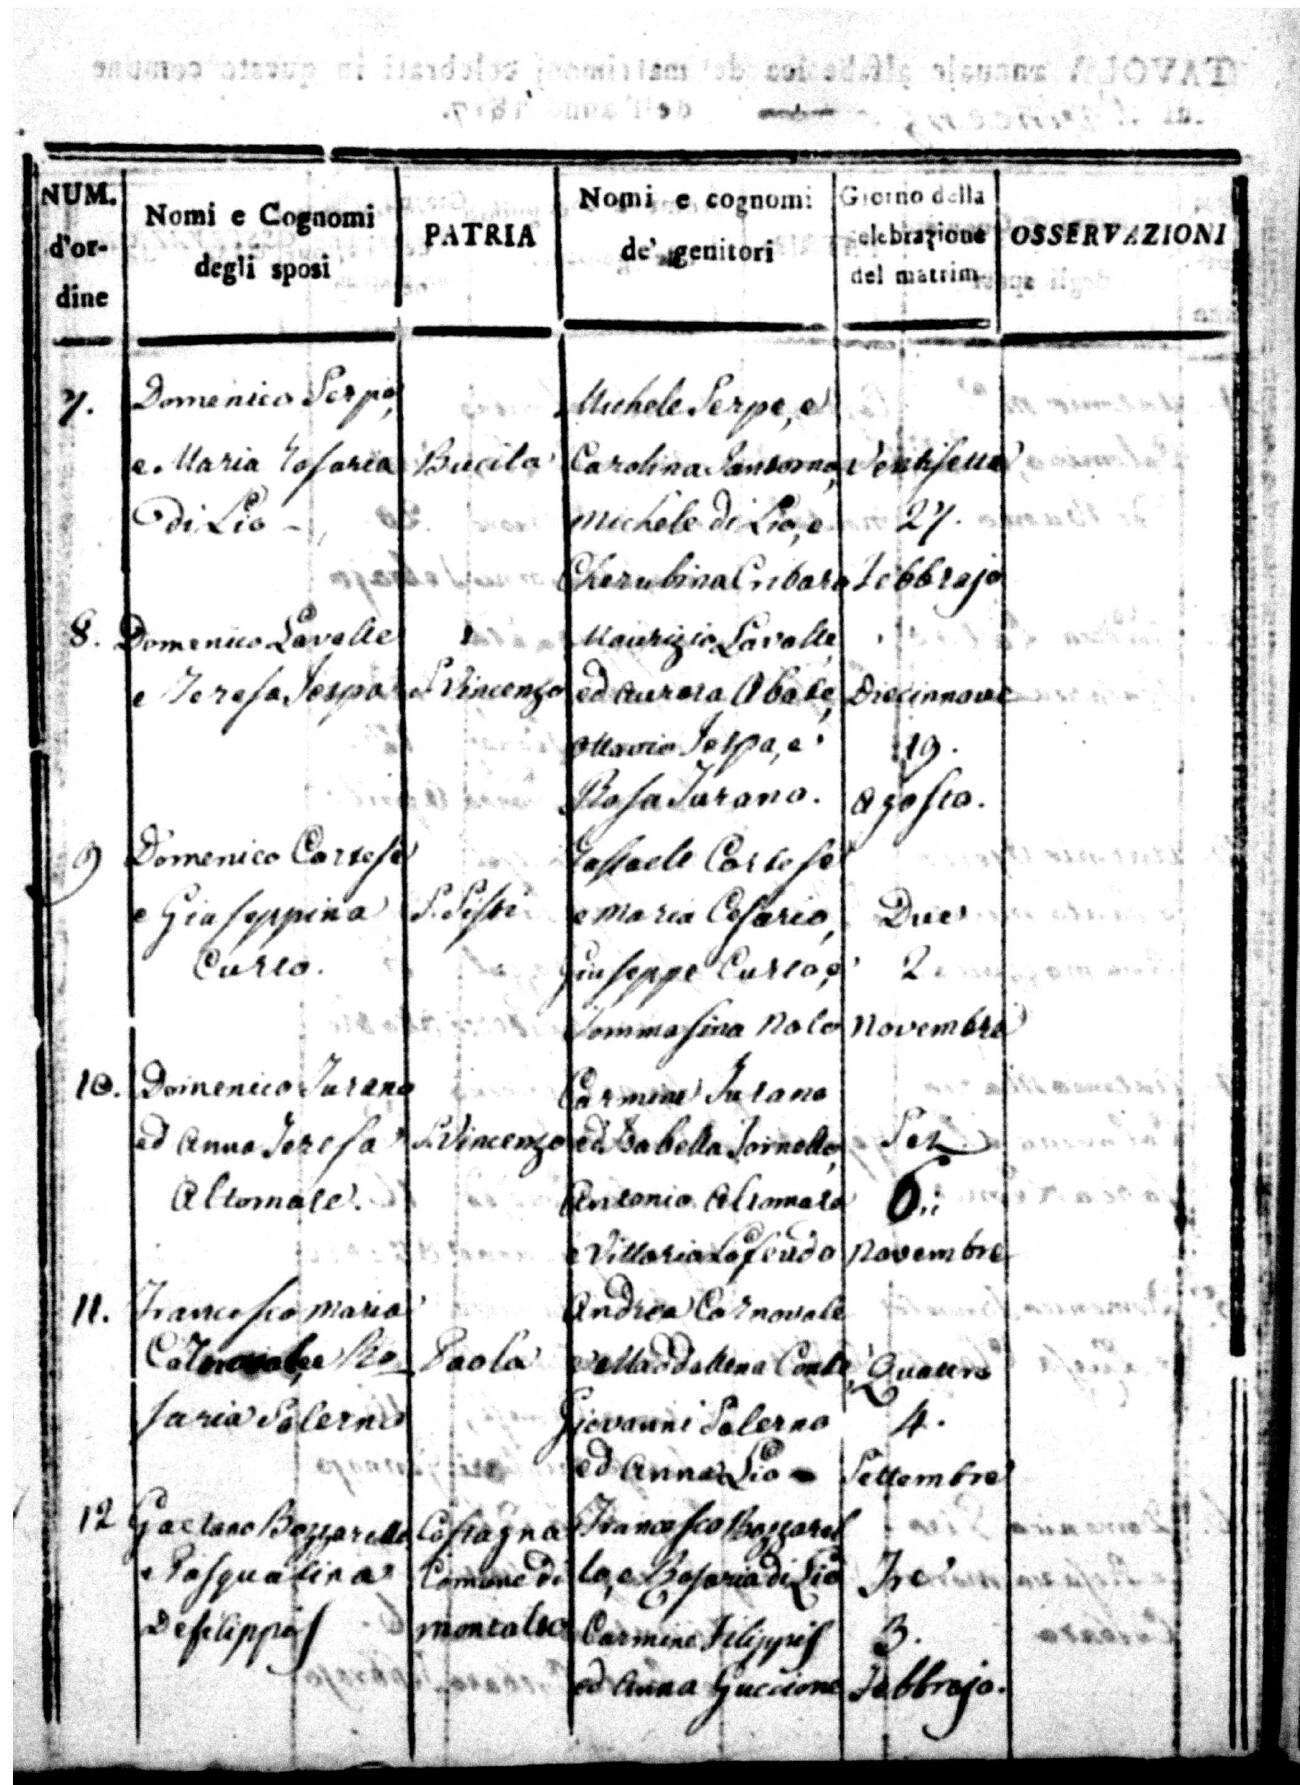 NUM. d'or- dine
Nomi e Cognomi degli sposi
PATRIA
Nomi e cognomi de' genitori
Giorno della celebrazione del matrim.
OSSERVAZIONI
7.
Domenico Serpe,
e Maria Rosaria
di Lio -
Bucita
Michele Serpe, e
Carolina Santoro,
Michele di Lio, e
Cherubina Cribaro
Ventisette
27.
Febbrajo
8.
Domenico Lavalle
e Teresa Jespa
S. Vincenzo
Maurizio Lavalle,
ed Aurora Abate,
Ottavio Jespa, e
Rosa Turano.
Diecinnove
19.
Agosto.
9
Domenico Cortese
e Giuseppina
Curto.
S. Sisti
Raffaele Cortese
e Maria Cesario,
Giuseppe Curto, e
Tommasina Nolo
Due
2
Novembre
10.
Domenico Turano
ed Anna Teresa
Altomare.
S. Vincenzo
Carmine Turano
ed Isabella Tornello,
Antonio Altomare
e Vittoria Lofeudo
Sei
6
Novembre
11.
Francesco Maria
Carnovale, e Ro-
saria Salerno
Paola
Andrea Carnovale
e Maddallena Conte,
Giovanni Salerno
ed Anna Lio -
Quattro
4.
Settembre
12
Gaetano Bozzarello
e Pasqualina
Defilippis
Castagna
Comune di
Montalto
Francesco Bozzarel
lo, e Rosaria di Lio
Carmine Filippis
ed Anna Guccione
Tre
3.
Febbrajo.